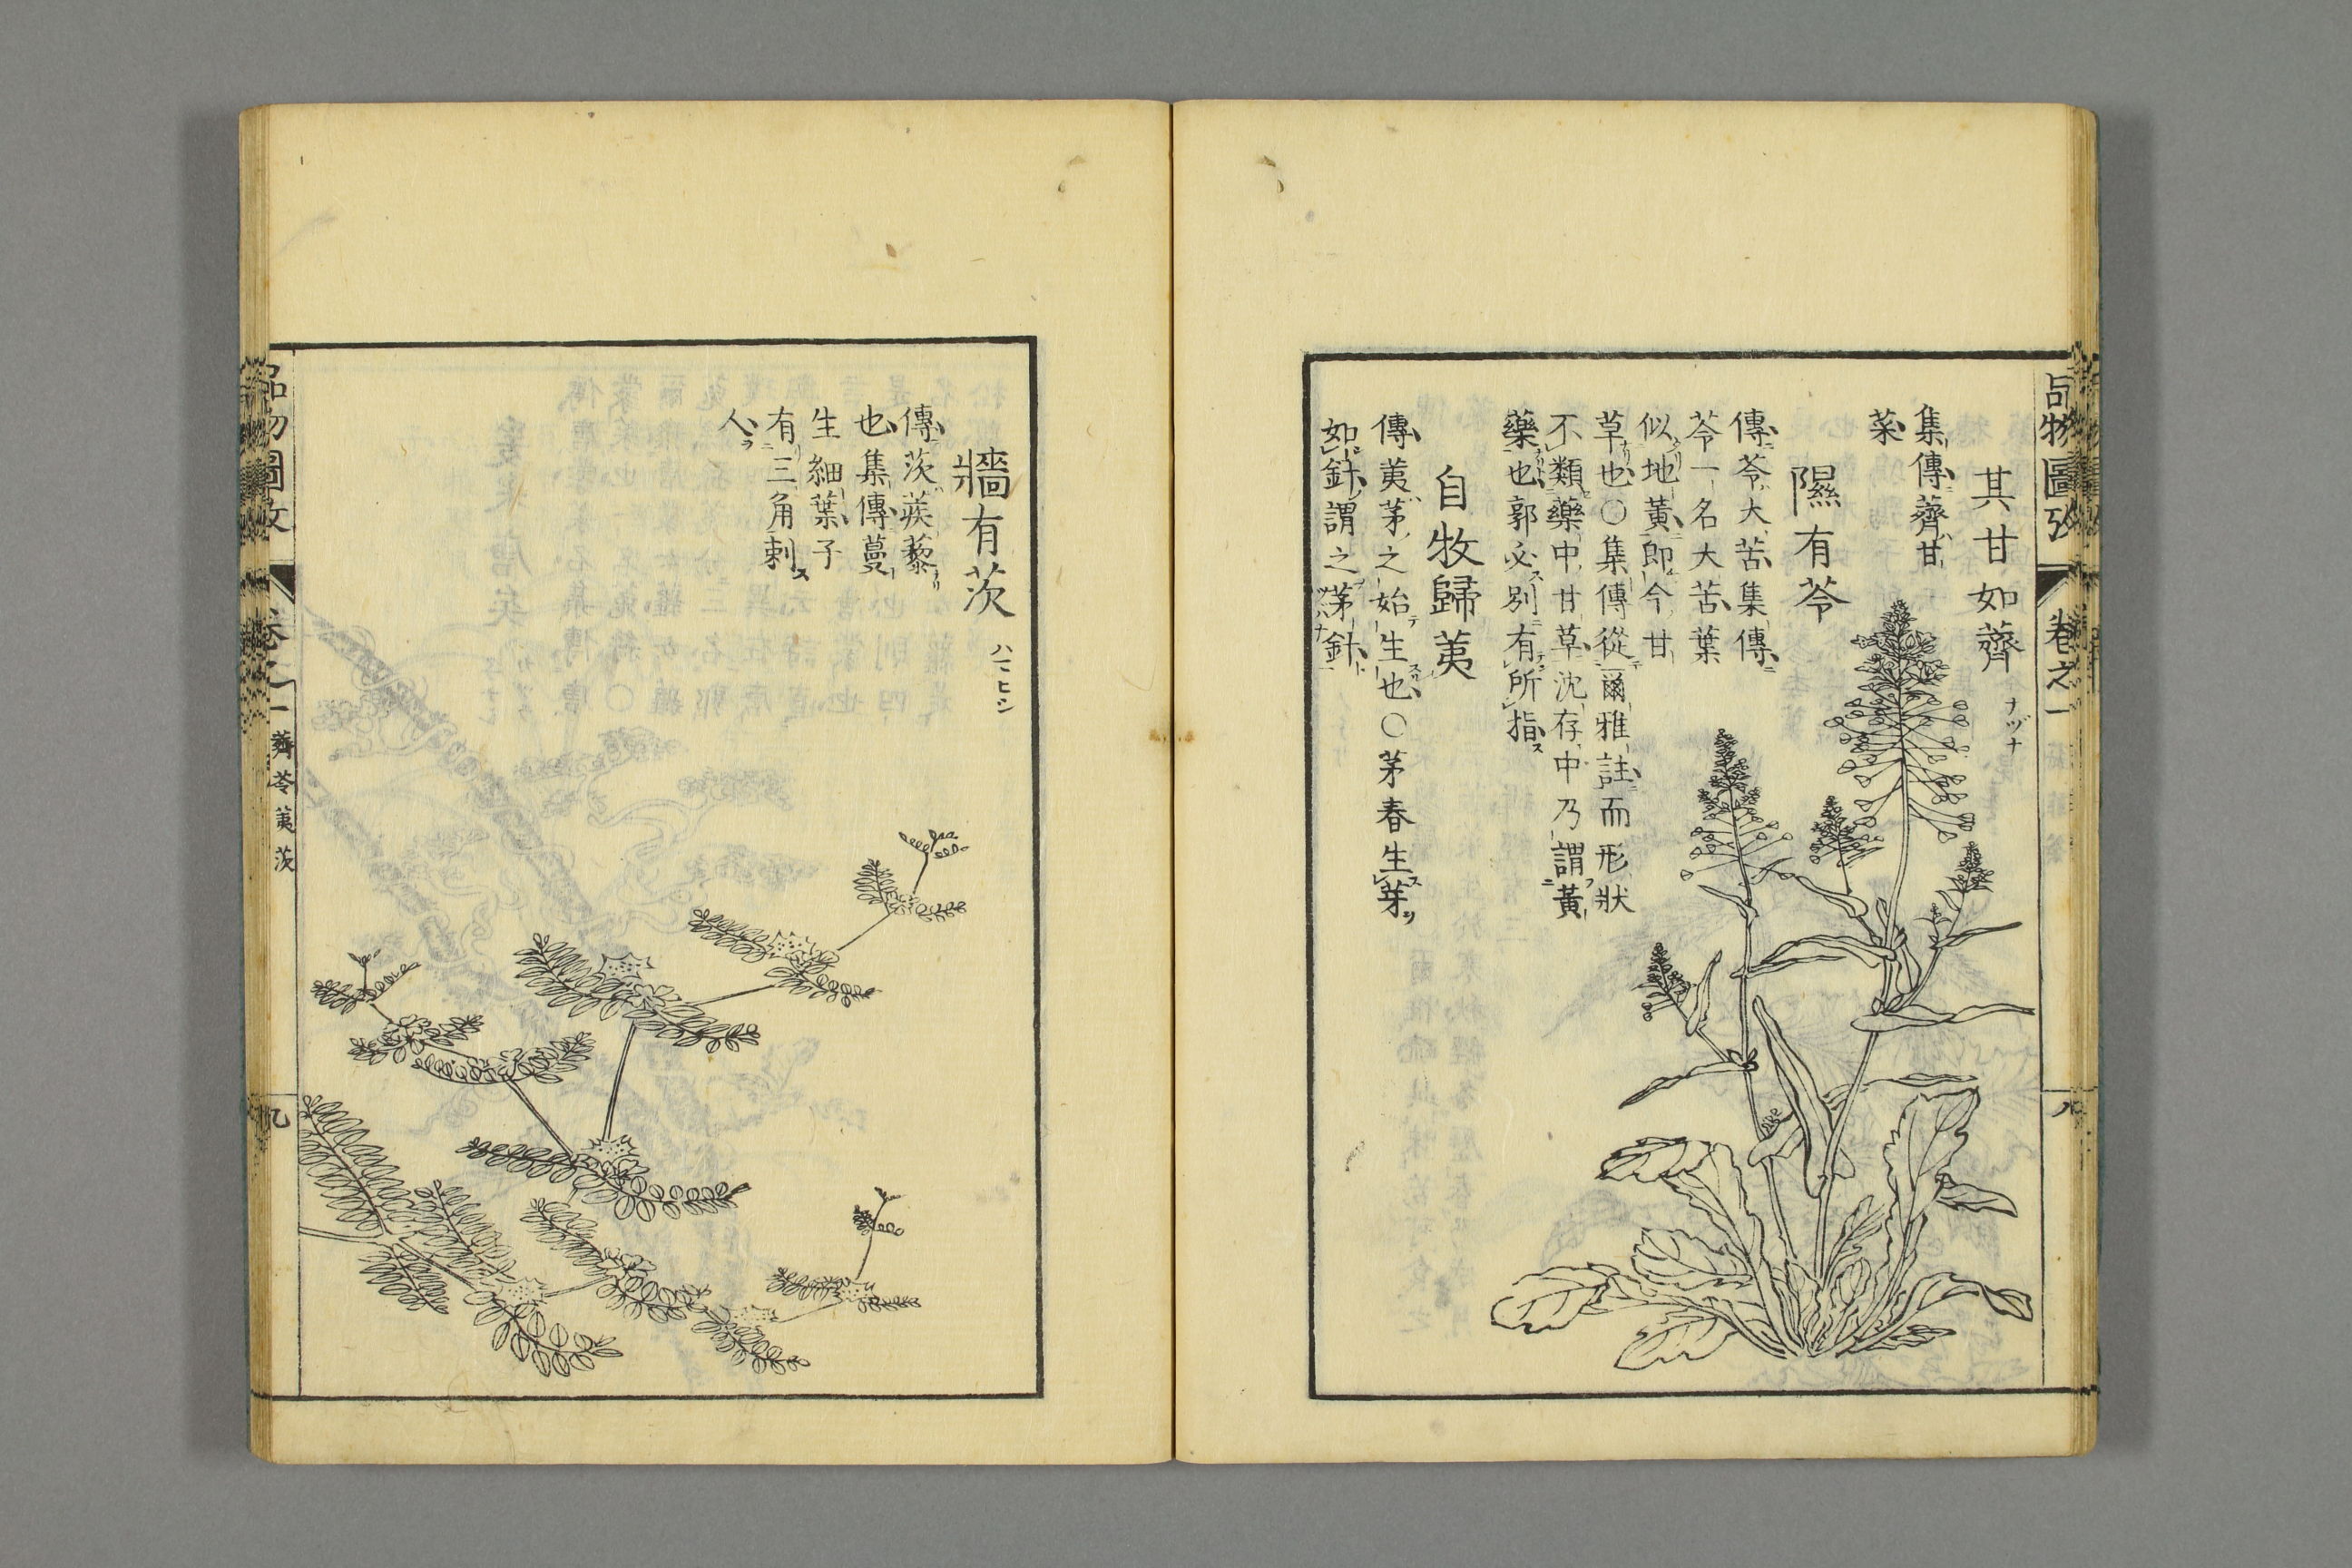 品物圖攷
卷之一
八
其甘如薺
ナヅナ
集傳薺甘
菜
隰有苓
傳苓大苦集傳
苓一名大苦葉
似地黃即今甘
草也〇集傳從爾雅註而形狀
不類藥中甘草沈存中乃謂黃
藥也郭必別有所指
自牧歸荑
傳荑茅之始生也〇茅春生芽
如針謂之茅針
牆有茨
ハマヒシ
傳茨蒺藜
也集傳蔓
生細葉子
有三角刺
人
品物圖攷
卷之一
薺苓荑茨
九